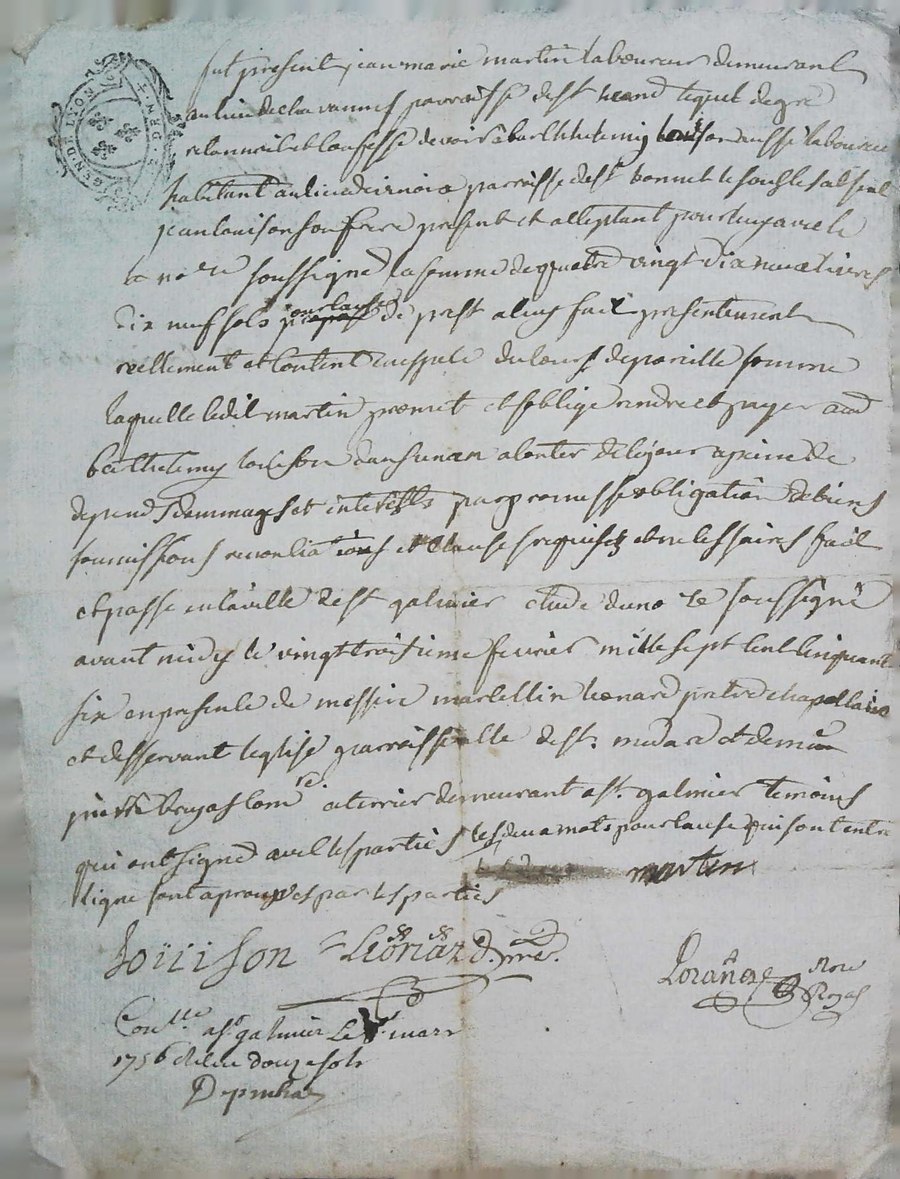 GEN. DE LYON
fut present jean marie martin laboureur demeurant
au lieu de chavannes parroisse de st lequel de gré
reconnoit et confesse devoir a barthelemy louison aussi laboureur
habitant au lieu de parroisse de st bonnet le
jean louison son frere present et acceptant pour luy avec le
no.re soussigné la somme de quatre vingt dix neuf livres
dix neuf sols pour cause de prest a luy fait presentement
reellement et contant en espece du cours de pareille somme
laquelle ledit martin promet et s'oblige rendre et payer aud
barthelemy louison dans un an a conter de ce jour a peine de
depends dommages et interests par promesse obligation de biens
soumissions renonciations et clauses requises et necessaires fait
et passé en la ville de st galmier etude du no.re soussigné
avant midy le vingt troisieme fevrier mille sept cent cinquante
six en presence de messire marcellin leonard pretre chapellain
et desservant l'eglise parroissialle de st. medard et de
pierre bruyas com.re a terrier demeurant a st. galmier temoins
qui ont signé avec les parties les deux mots pour cause qui sont entre
ligne sont aprouvés par les parties
martin
Louison Leonard
not Royal
Con.lle a st galmier le mars
1756 Reçu douze sols